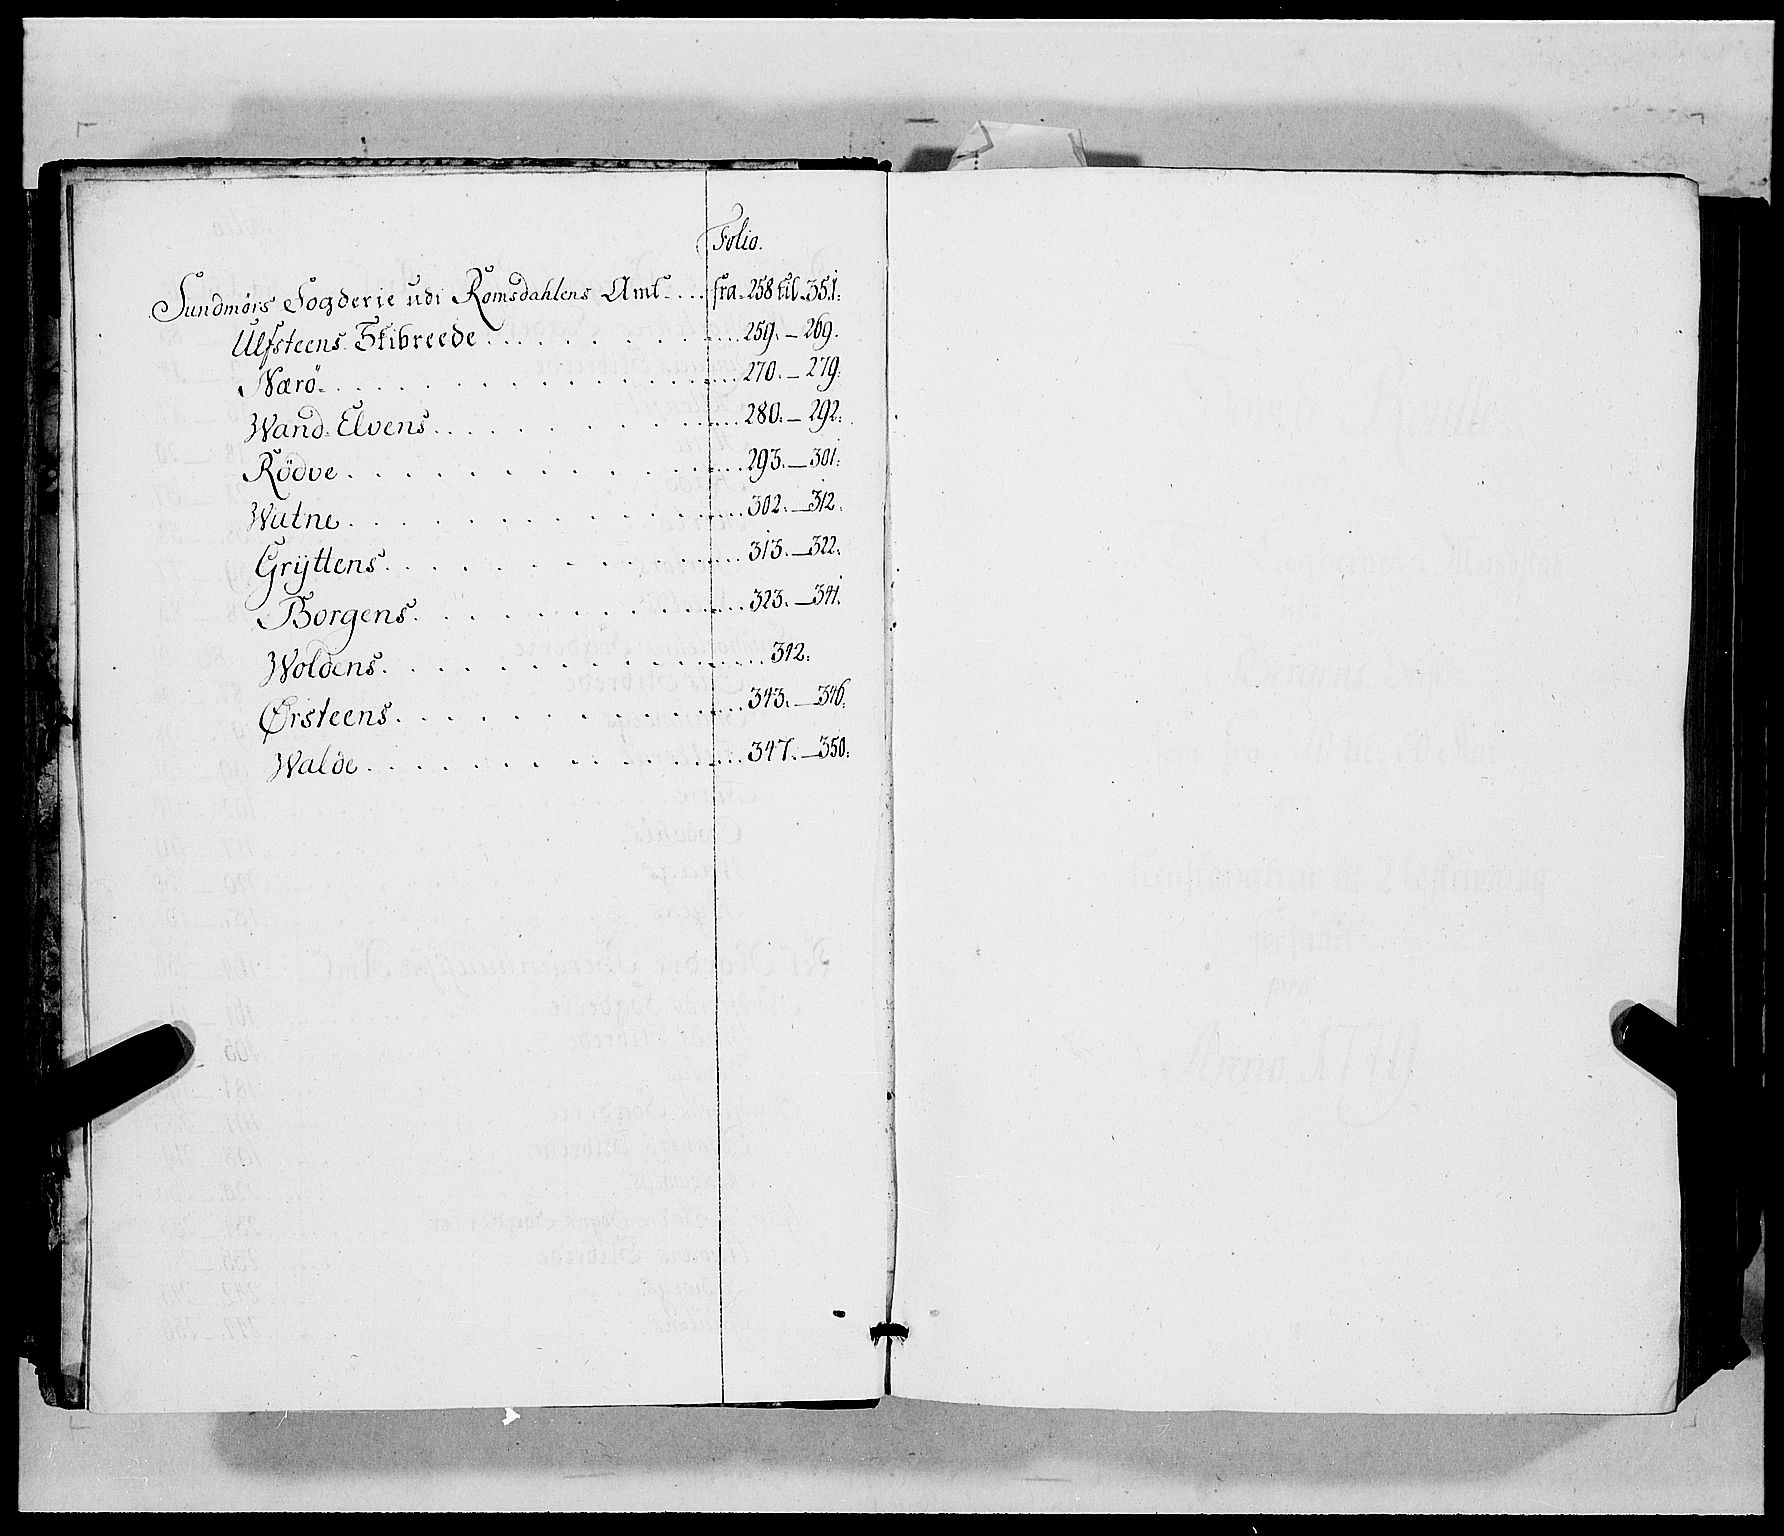 Folio.
Sundmørs Fogderie udi Romsdahlens Amt.... fra 258 til 351:
Ulfsteens Skibreede.......... 259. — 269.
Nærö............... 270. — 279:
Wand Elvens............. 280. — 292:
Rödve............... 293. — 301:
Watne............... 302. — 312.
Grÿttens............. 313. — 322:
Borgens............. 323. — 341.
Woldens............. 342:
Ørsteens............. 343. — 346.
Walde............... 347. — 350: